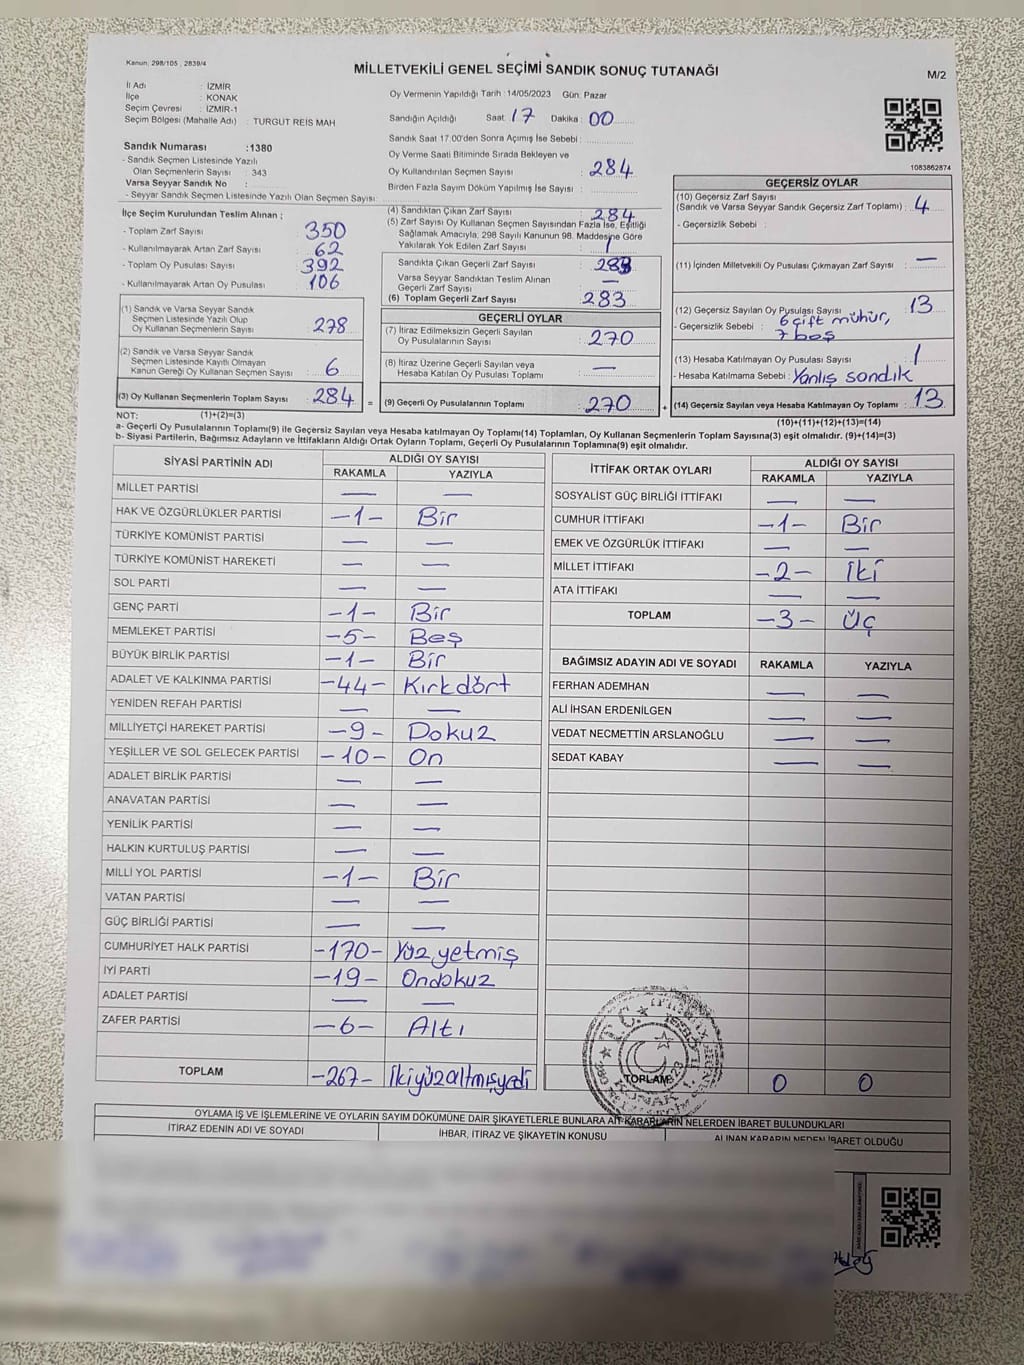 Kanun, 298/105 , 2839/4
MİLLETVEKİLİ GENEL SEÇİMİ SANDIK SONUÇ TUTANAĞI
M/2
İl Adı : İZMİR
İlçe : KONAK
Seçim Çevresi : İZMİR-1
Seçim Bölgesi (Mahalle Adı) : TURGUT REİS MAH
Sandık Numarası :1380
- Sandık Seçmen Listesinde Yazılı
Olan Seçmenlerin Sayısı : 343
Varsa Seyyar Sandık No :
- Seyyar Sandık Seçmen Listesinde Yazılı Olan Seçmen Sayısı:
Oy Vermenin Yapıldığı Tarih : 14/05/2023 Gün: Pazar
Sandığın Açıldığı Saat : 17 Dakika : 00
Sandık Saat 17:00'den Sonra Açımış İse Sebebi :
Oy Verme Saati Bitiminde Sırada Bekleyen ve
Oy Kullandırılan Seçmen Sayısı : 284
Birden Fazla Sayım Döküm Yapılmış İse Sayısı :
1083862874
İlçe Seçim Kurulundan Teslim Alınan ;
- Toplam Zarf Sayısı : 350
- Kullanılmayarak Artan Zarf Sayısı : 62
- Toplam Oy Pusulası Sayısı : 392
- Kullanılmayarak Artan Oy Pusulası : 106
(1) Sandık ve Varsa Seyyar Sandık
Seçmen Listesinde Yazılı Olup
Oy Kullanan Seçmenlerin Sayısı : 278
(2) Sandık ve Varsa Seyyar Sandık
Seçmen Listesinde Kayıtlı Olmayan
Kanun Gereği Oy Kullanan Seçmen Sayısı : 6
(3) Oy Kullanan Seçmenlerin Toplam Sayısı : 284 =
(4) Sandıktan Çıkan Zarf Sayısı : 284
(5) Zarf Sayısı Oy Kullanan Seçmen Sayısından Fazla İse, Eşitliği
Sağlamak Amacıyla, 298 Sayılı Kanunun 98. Maddesine Göre
Yakılarak Yok Edilen Zarf Sayısı : 1
Sandıkta Çıkan Geçerli Zarf Sayısı : 283
Varsa Seyyar Sandıktan Teslim Alınan
Geçerli Zarf Sayısı : —
(6) Toplam Geçerli Zarf Sayısı : 283
GEÇERLİ OYLAR
(7) İtiraz Edilmeksizin Geçerli Sayılan
Oy Pusulalarının Sayısı : 270
(8) İtiraz Üzerine Geçerli Sayılan veya
Hesaba Katılan Oy Pusulası Toplamı : —
(9) Geçerli Oy Pusulalarının Toplamı : 270 +
GEÇERSİZ OYLAR
(10) Geçersiz Zarf Sayısı
(Sandık ve Varsa Seyyar Sandık Geçersiz Zarf Toplamı) : 4
- Geçersizlik Sebebi :
(11) İçinden Milletvekili Oy Pusulası Çıkmayan Zarf Sayısı : —
(12) Geçersiz Sayılan Oy Pusulası Sayısı : 13
- Geçersizlik Sebebi : 6 çift mühür,
7 boş
(13) Hesaba Katılmayan Oy Pusulası Sayısı : 1
- Hesaba Katılmama Sebebi : Yanlış sandık
(14) Geçersiz Sayılan veya Hesaba Katılmayan Oy Toplamı : 13
NOT: (1)+(2)=(3)
(10)+(11)+(12)+(13)=(14)
a- Geçerli Oy Pusulalarının Toplamı(9) ile Geçersiz Sayılan veya Hesaba katılmayan Oy Toplamı(14) Toplamları, Oy Kullanan Seçmenlerin Toplam Sayısına(3) eşit olmalıdır. (9)+(14)=(3)
b- Siyasi Partilerin, Bağımsız Adayların ve İttifakların Aldığı Ortak Oyların Toplamı, Geçerli Oy Pusulalarının Toplamına(9) eşit olmalıdır.
SİYASİ PARTİNİN ADI ALDIĞI OY SAYISI
RAKAMLA YAZIYLA
MİLLET PARTİSİ — —
HAK VE ÖZGÜRLÜKLER PARTİSİ -1- Bir
TÜRKİYE KOMÜNİST PARTİSİ — —
TÜRKİYE KOMÜNİST HAREKETİ — —
SOL PARTİ — —
GENÇ PARTİ -1- Bir
MEMLEKET PARTİSİ -5- Beş
BÜYÜK BİRLİK PARTİSİ -1- Bir
ADALET VE KALKINMA PARTİSİ -44- Kırkdört
YENİDEN REFAH PARTİSİ — —
MİLLİYETÇİ HAREKET PARTİSİ -9- Dokuz
YEŞİLLER VE SOL GELECEK PARTİSİ -10- On
ADALET BİRLİK PARTİSİ — —
ANAVATAN PARTİSİ — —
YENİLİK PARTİSİ — —
HALKIN KURTULUŞ PARTİSİ — —
MİLLİ YOL PARTİSİ -1- Bir
VATAN PARTİSİ — —
GÜÇ BİRLİĞİ PARTİSİ — —
CUMHURİYET HALK PARTİSİ -170- Yüz yetmiş
İYİ PARTİ -19- Ondokuz
ADALET PARTİSİ — —
ZAFER PARTİSİ -6- Altı
TOPLAM -267- İkiyüzaltmışyedi
İTTİFAK ORTAK OYLARI ALDIĞI OY SAYISI
RAKAMLA YAZIYLA
SOSYALİST GÜÇ BİRLİĞİ İTTİFAKI — —
CUMHUR İTTİFAKI -1- Bir
EMEK VE ÖZGÜRLÜK İTTİFAKI — —
MİLLET İTTİFAKI -2- İki
ATA İTTİFAKI — —
TOPLAM -3- Üç
BAĞIMSIZ ADAYIN ADI VE SOYADI RAKAMLA YAZIYLA
FERHAN ADEMHAN — —
ALİ İHSAN ERDENİLGEN — —
VEDAT NECMETTİN ARSLANOĞLU — —
SEDAT KABAY — —
TOPLAM: 0 0
T.C.
KONAK
OYLAMA İŞ VE İŞLEMLERİNE VE OYLARIN SAYIM DÖKÜMÜNE DAİR ŞİKAYETLERLE BUNLARA AİT KARARLARIN NELERDEN İBARET BULUNDUKLARI
İTİRAZ EDENİN ADI VE SOYADI İHBAR, İTİRAZ VE ŞİKAYETİN KONUSU ALINAN KARARIN NEDEN İBARET OLDUĞU